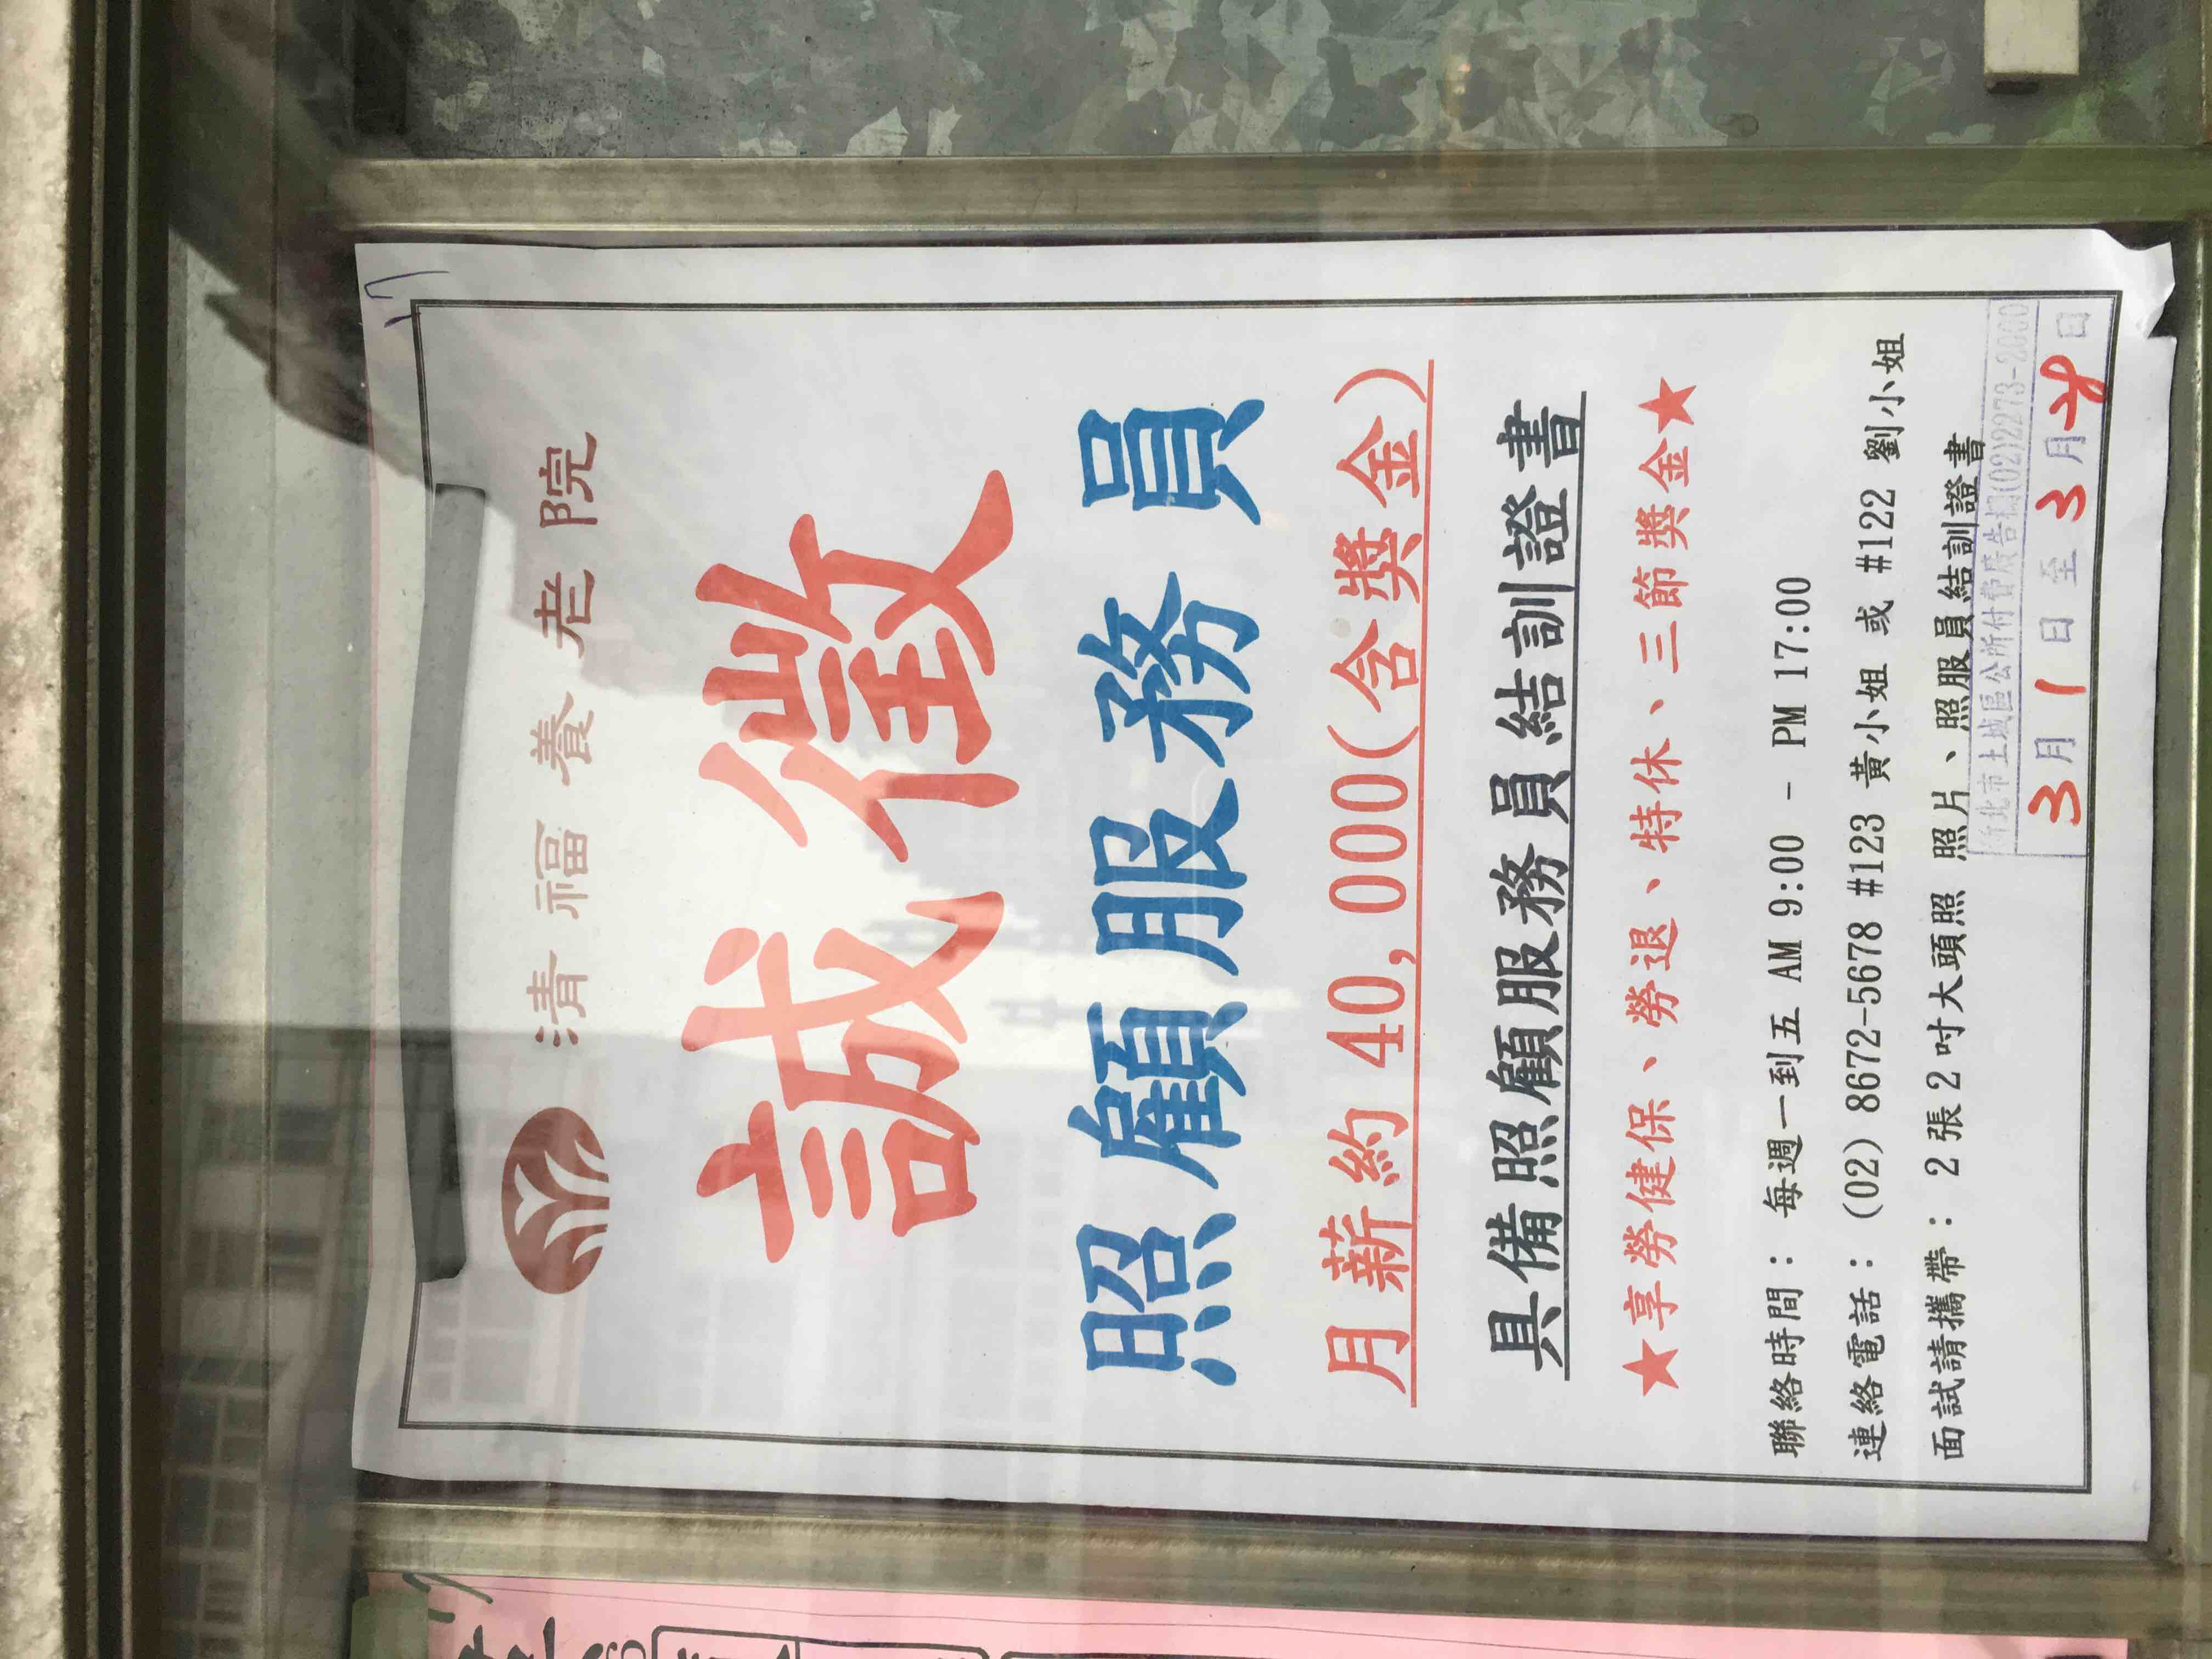 清福養老院
誠徵
照顧服務員
月薪約40,000(含獎金)
具備照顧服務員結訓證書
★享勞健保、勞退、特休、三節獎金★
聯絡時間：每週一到五 AM 9:00 - PM 17:00
連絡電話：(02) 8672-5678 #123 黃小姐 或 #122 劉小姐
面試請攜帶：2張2吋大頭照 照片、照服員結訓證書
新北市土城區公所付費廣告欄(02)2273-2000
3月1日至3月 日